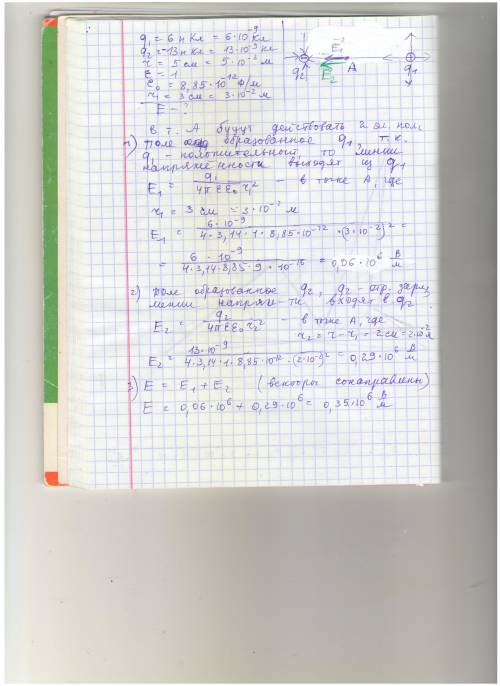 q₁ = 6 нКл = 6·10⁻⁹ Кл
q₂ = -13 нКл = 13·10⁻⁹ Кл
r = 5 см = 5·10⁻² м
ε = 1
ε₀ = 8,85·10⁻¹² Ф/м
r₁ = 3 см = 3·10⁻² м
E - ?
E₁
q₂ E₂ A q₁
В т. А будут действовать 2 эл. поля
1) поле образованное q₁, т.к.
q₁ - положительный, то линии
напряженности выходят из q₁
E₁ = q₁ / 4πεε₀r₁² - в точке А, где
r₁ = 3 см = 3·10⁻² м
E₁ = 6·10⁻⁹ / 4·3,14·1·8,85·10⁻¹²·(3·10⁻²)² =
= 6·10⁻⁹ / 4·3,14·8,85·9·10⁻¹⁶ = 0,06·10⁶ В/м
2) поле образованное q₂, q₂ - отр. заряд,
линии напряж-ти входят в q₂
E₂ = q₂ / 4πεε₀r₂² - в точке А, где
r₂ = r - r₁ = 2 см = 2·10⁻² м
E₂ = 13·10⁻⁹ / 4·3,14·1·8,85·10⁻¹²·(2·10⁻²)² = 0,29·10⁶ В/м
3) E = E₁ + E₂ (векторы сонаправлены)
E = 0,06·10⁶ + 0,29·10⁶ = 0,35·10⁶ В/м